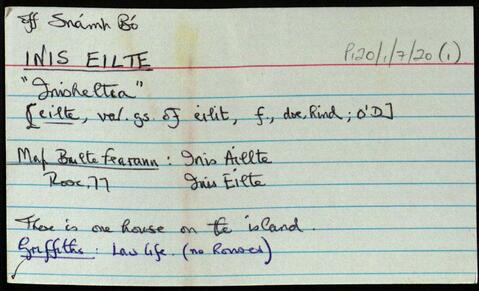 off Snámh Bó
INIS EILTE
P120/1/7/20 (1)
"Inisheltia"
[eilte, var. gs. of eilit, f., doe, hind; O'D]
Map Bailte Fearann: Inis Áillte
Rosc. 77 Inis Eilte
There is one house on the island.
Griffiths: Law Life. (no houses)